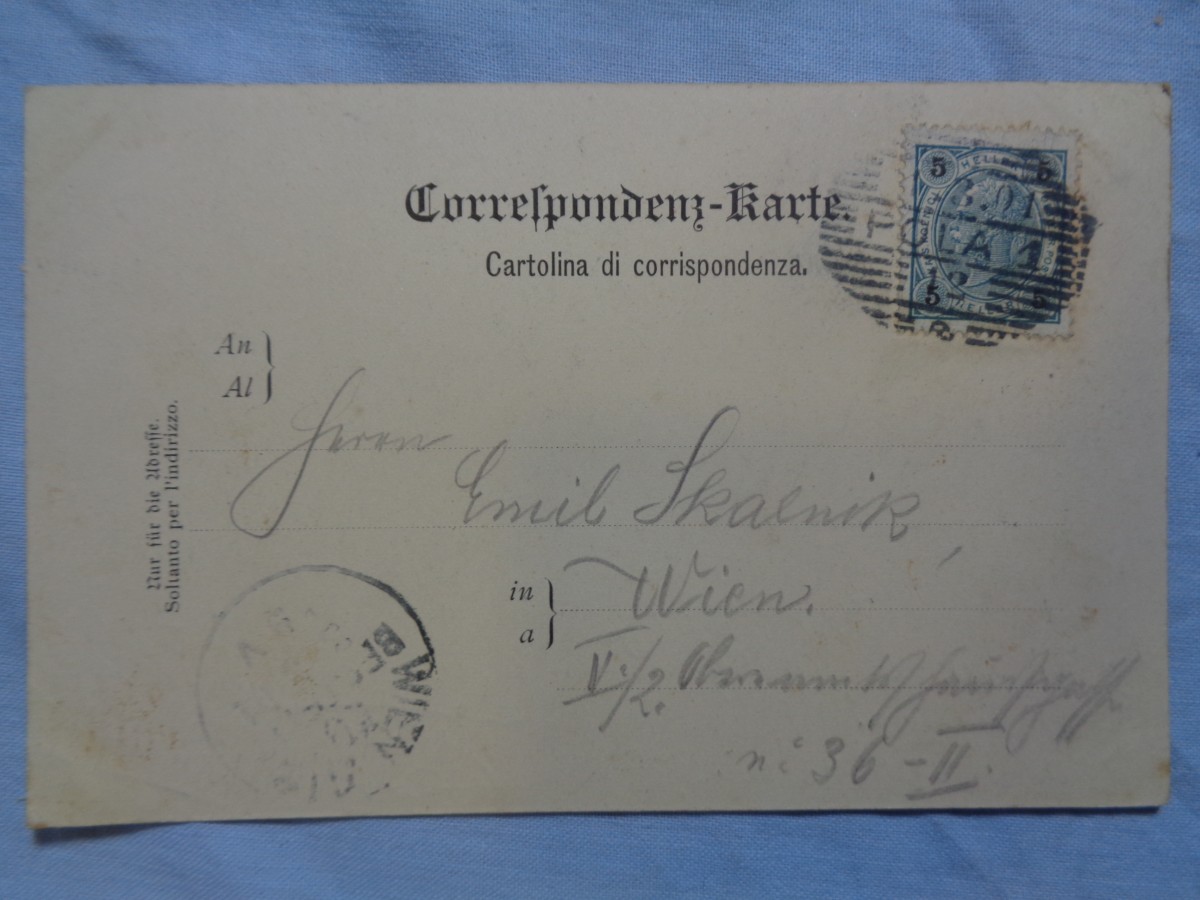 Correspondenz-Karte.
Cartolina di corrispondenza.
5 HELLER 5
5 HELLER 5
An
Al
Nur für die Adresse.
Soltanto per l'indirizzo.
Herrn
Emil Skalnik,
in
a
Wien.
V./2.
nº 36-II.
WIEN